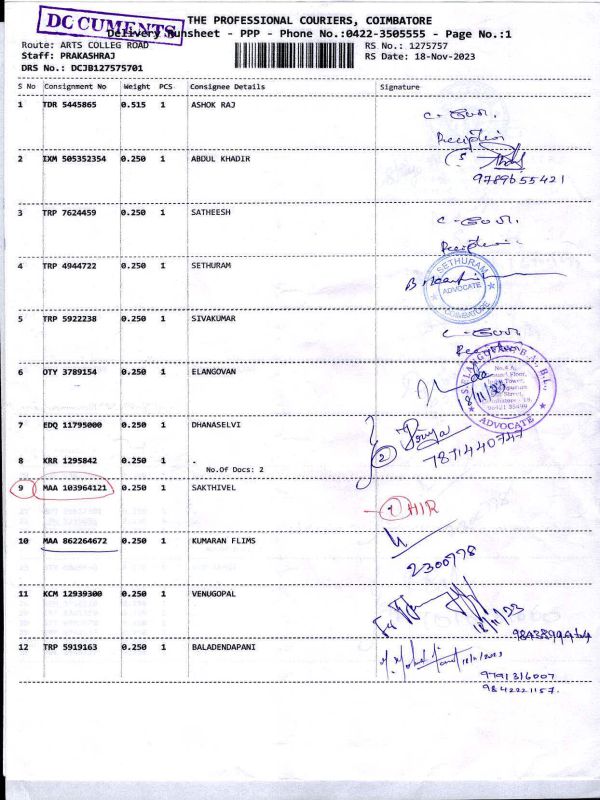 DOCUMENTS
THE PROFESSIONAL COURIERS, COIMBATORE
Delivery Runsheet - PPP - Phone No.:0422-3505555 - Page No.:1
Route: ARTS COLLEG ROAD RS No.: 1275757
Staff: PRAKASHRAJ RS Date: 18-Nov-2023
DRS No.: DCJB127575701
S No Consignment No Weight PCS Consignee Details Signature
1 TDR 5445865 0.515 1 ASHOK RAJ
Reception
2 IXM 505352354 0.250 1 ABDUL KHADIR
9789655421
3 TRP 7624459 0.250 1 SATHEESH
Reception
4 TRP 4944722 0.250 1 SETHURAM
SETHURAM
ADVOCATE
COIMBATORE
5 TRP 5922238 0.250 1 SIVAKUMAR
Reception
6 OTY 3789154 0.250 1 ELANGOVAN
ELANGOVAN, B.A., B.L.,
ADVOCATE
7 EDQ 11795000 0.250 1 DHANASELVI
2
7871440747
8 KRR 1295842 0.250 1 .
No.Of Docs: 2
9 MAA 103964121 0.250 1 SAKTHIVEL
10 MAA 862264672 0.250 1 KUMARAN FLIMS
2300778
11 KCM 12939300 0.250 1 VENUGOPAL
18/11/23
12 TRP 5919163 0.250 1 BALADENDAPANI
18/11/2023
9791316007
9842221157.